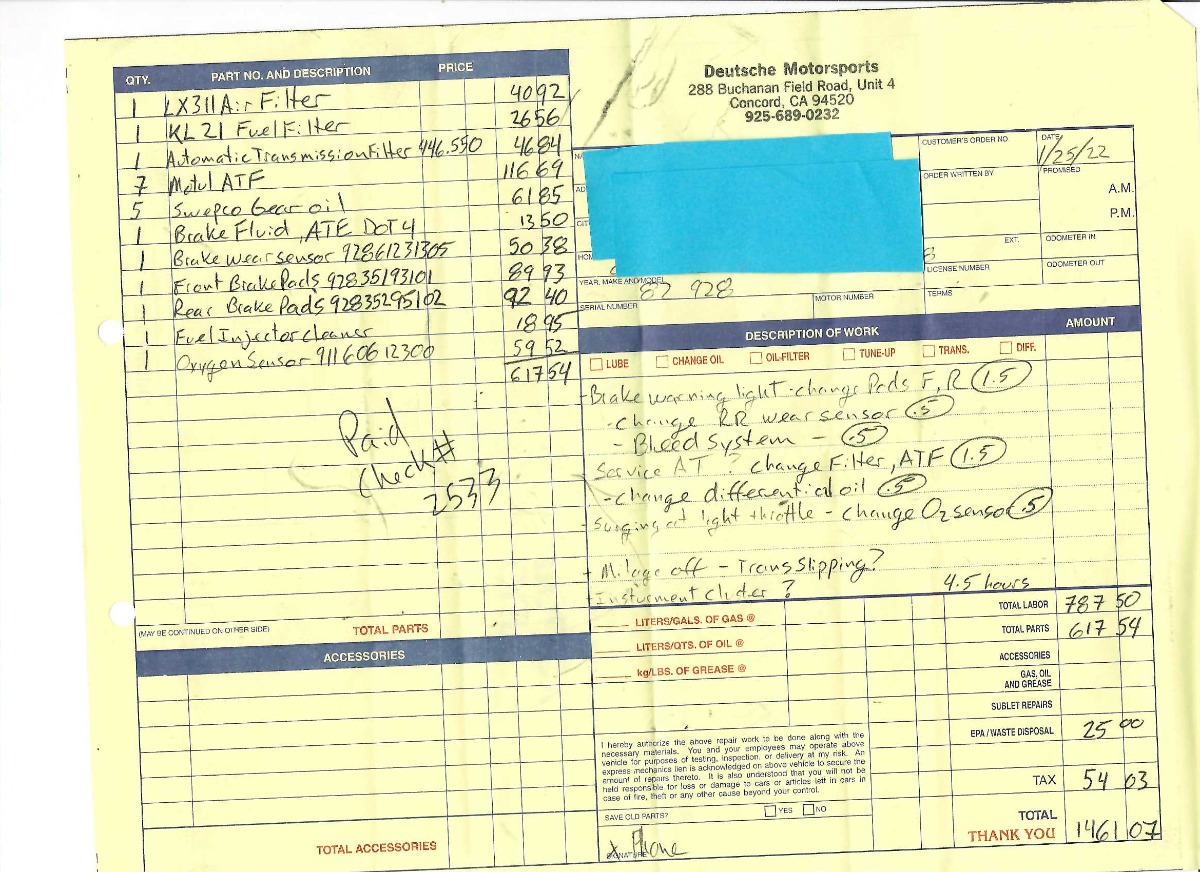 QTY. PART NO. AND DESCRIPTION PRICE
1 LX311 Air Filter 40 92
1 KL 21 Fuel Filter 26 56
1 Automatic Transmission Filter 446.550 46 84
7 Motul ATF 116 69
5 Swepco Gear oil 61 85
1 Brake Fluid, ATE DOT 4 13 50
1 Brake wear sensor 92861231305 50 38
1 Front Brake Pads 92835193101 89 93
1 Rear Brake Pads 92835295102 92 40
1 Fuel Injector cleaner 18 95
1 Oxygen Sensor 91160612300 59 52
617 54
Paid
Check#
2533
(MAY BE CONTINUED ON OTHER SIDE) TOTAL PARTS
ACCESSORIES
TOTAL ACCESSORIES
Deutsche Motorsports
288 Buchanan Field Road, Unit 4
Concord, CA 94520
925-689-0232
CUSTOMER'S ORDER NO. DATE
1/25/22
ORDER WRITTEN BY PROMISED
A.M.
P.M.
EXT. ODOMETER IN
LICENSE NUMBER ODOMETER OUT
YEAR, MAKE AND MODEL
87 928
SERIAL NUMBER MOTOR NUMBER TERMS
DESCRIPTION OF WORK AMOUNT
LUBE CHANGE OIL OIL-FILTER TUNE-UP TRANS. DIFF.
- Brake warning light - change Pads F, R 1.5
- change RR wear sensor .5
- Bleed system - .5
Service AT ? change Filter, ATF 1.5
- change differential oil .5
- Surging at light throttle - change O2 sensor .5
- Milage off - Trans Slipping?
- Insturment cluder ?
4.5 hours
LITERS/GALS. OF GAS @
LITERS/QTS. OF OIL @
kg/LBS. OF GREASE @
TOTAL LABOR 787 50
TOTAL PARTS 617 54
ACCESSORIES
GAS, OIL
AND GREASE
SUBLET REPAIRS
EPA / WASTE DISPOSAL 25 00
TAX 54 03
TOTAL
THANK YOU 1461 07
I hereby authorize the above repair work to be done along with the
necessary materials. You and your employees may operate above
vehicle for purposes of testing, inspection, or delivery at my risk. An
express mechanics lien is acknowledged on above vehicle to secure the
amount of repairs thereto. It is also understood that you will not be
held responsible for loss or damage to cars or articles left in cars in
case of fire, theft or any other cause beyond your control.
SAVE OLD PARTS? YES NO
SIGNATURE x Phone